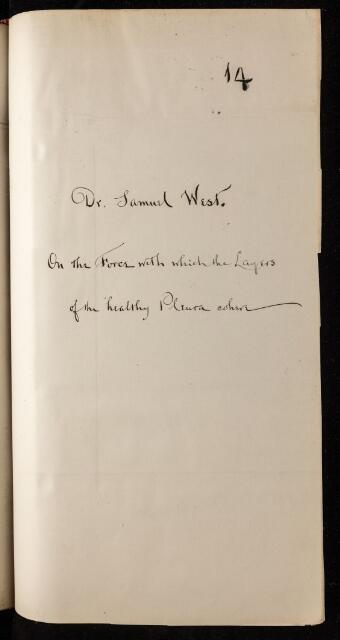 14
Dr. Samuel West.
On the Force with which the Layers
of the healthy Pleura cohere